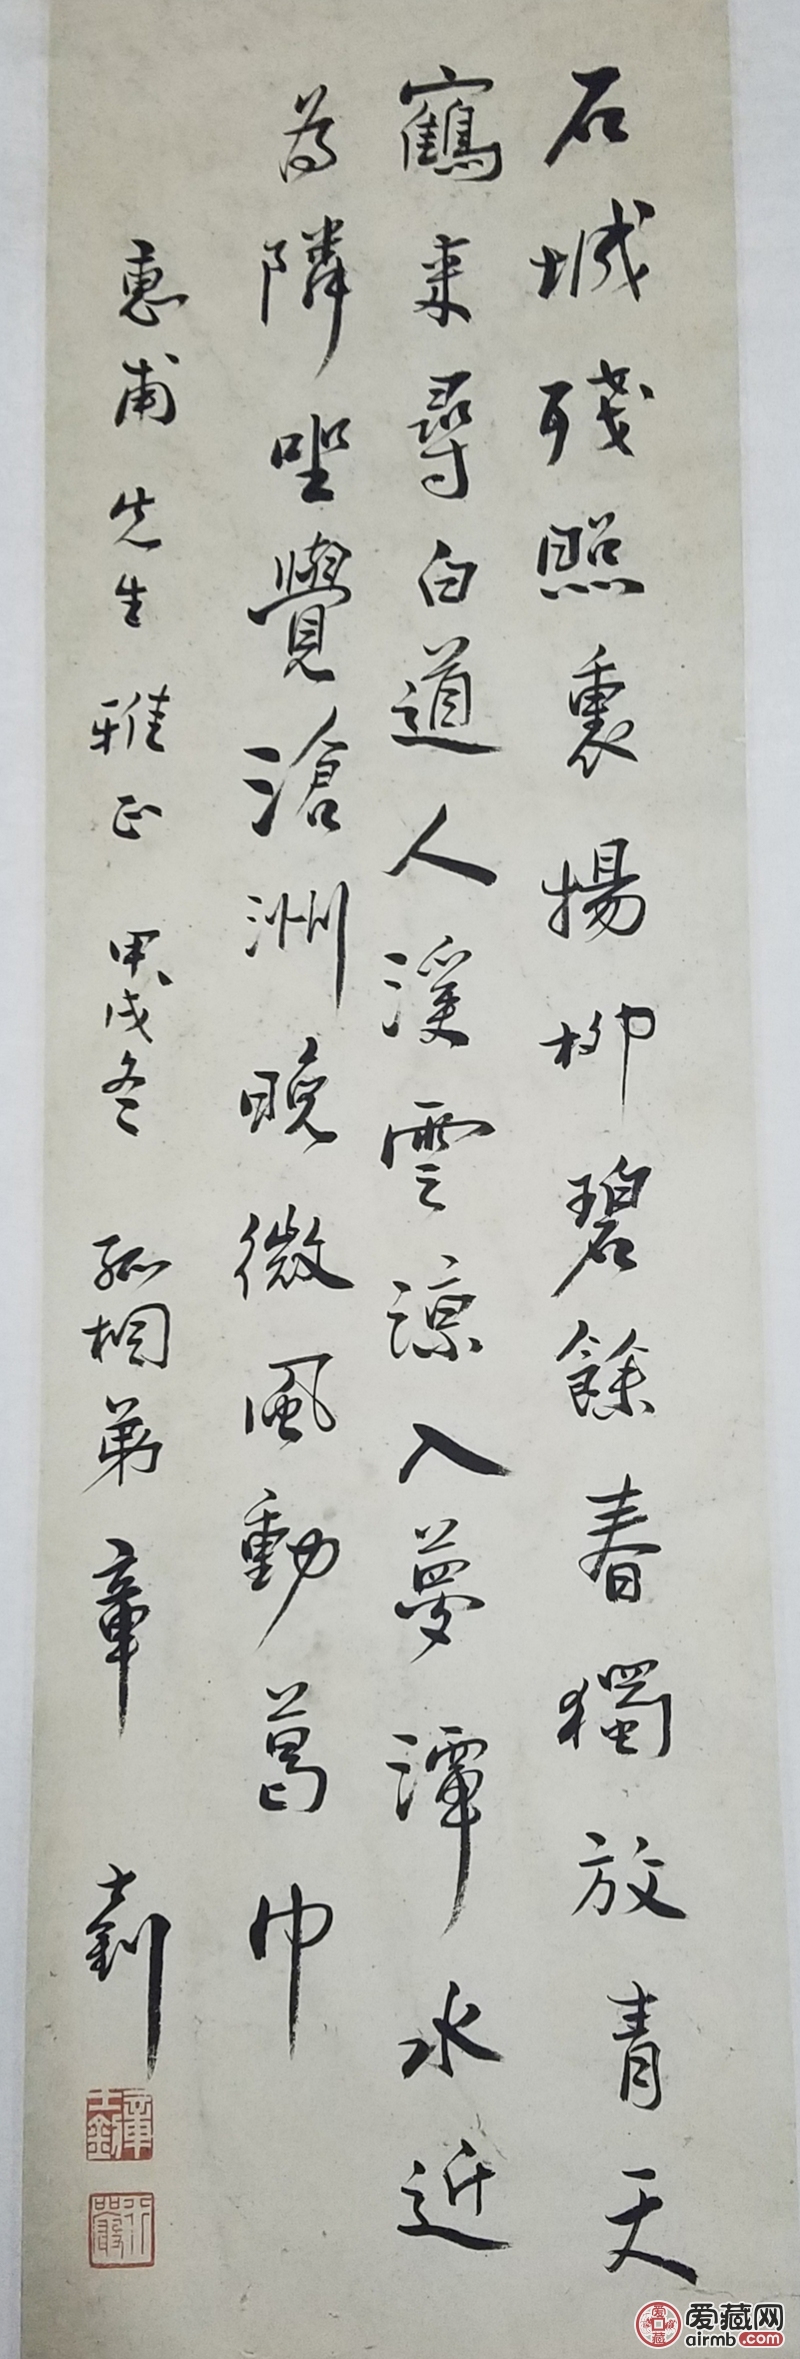 石城殘照裏楊柳碧餘春獨放青天
鶴来尋白道人溪雲涼入夢潭水近
為隣坐覺滄洲晚微風動葛巾
惠甫先生雅正 甲戌冬 孤桐弟章士釗
章士釗
行嚴
爱藏网
airmb.com